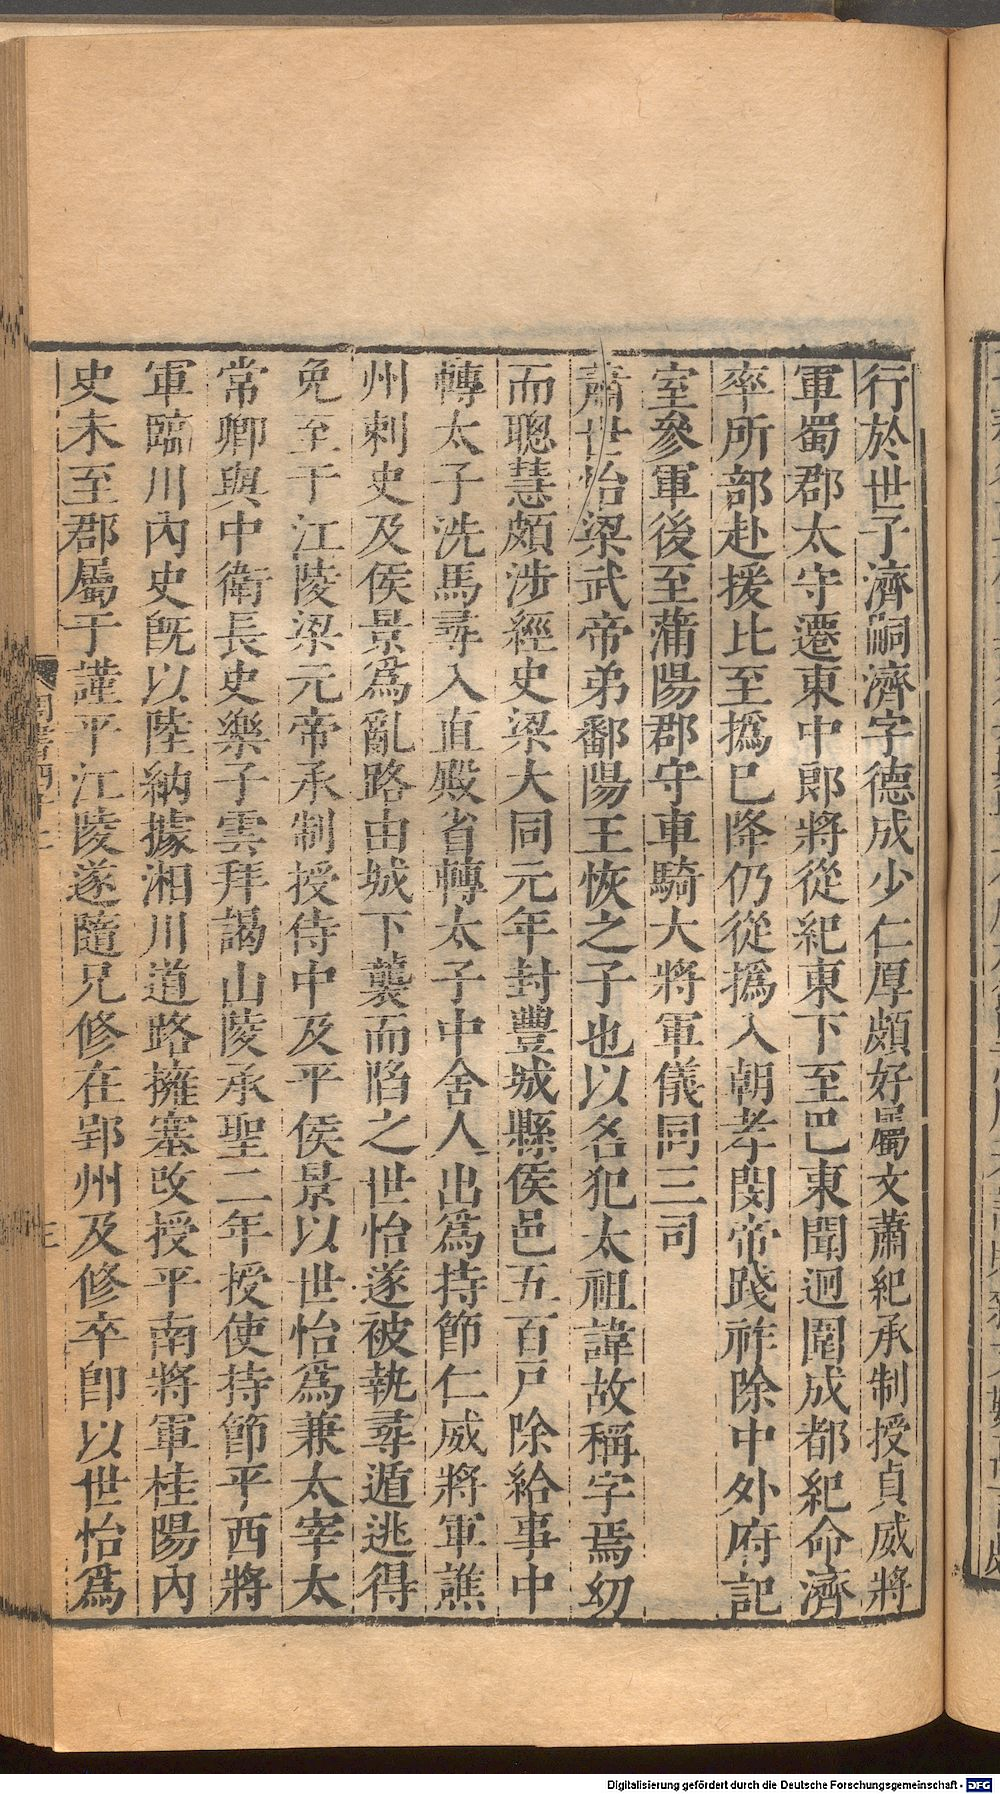 行於世子濟嗣濟字德成少仁厚頗好屬文蕭紀承制授貞威將
軍蜀郡太守遷東中郎將從紀東下至巴東聞迥圍成都紀命濟
率所部赴援比至撝已降仍從撝入朝孝閔帝踐祚除中外府記
室參軍後至蒲陽郡守車騎大將軍儀同三司
蕭世怡梁武帝弟鄱陽王恢之子也以名犯太祖諱故稱字焉幼
而聰慧頗涉經史梁大同元年封豐城縣侯邑五百戸除給事中
轉太子洗馬尋入直殿省轉太子中舍人出爲持節仁威將軍譙
州刺史及侯景爲亂路由城下襲而陷之世怡遂被執尋遁逃得
免至于江陵梁元帝承制授侍中及平侯景以世怡爲兼太宰太
常卿與中衛長史樂子雲拜謁山陵承聖二年授使持節平西將
軍臨川內史既以陸納據湘川道路擁塞改授平南將軍桂陽內
史未至郡屬于謹平江陵遂隨兄修在郢州及修卒卽以世怡爲
Digitalisierung gefördert durch die Deutsche Forschungsgemeinschaft - DFG